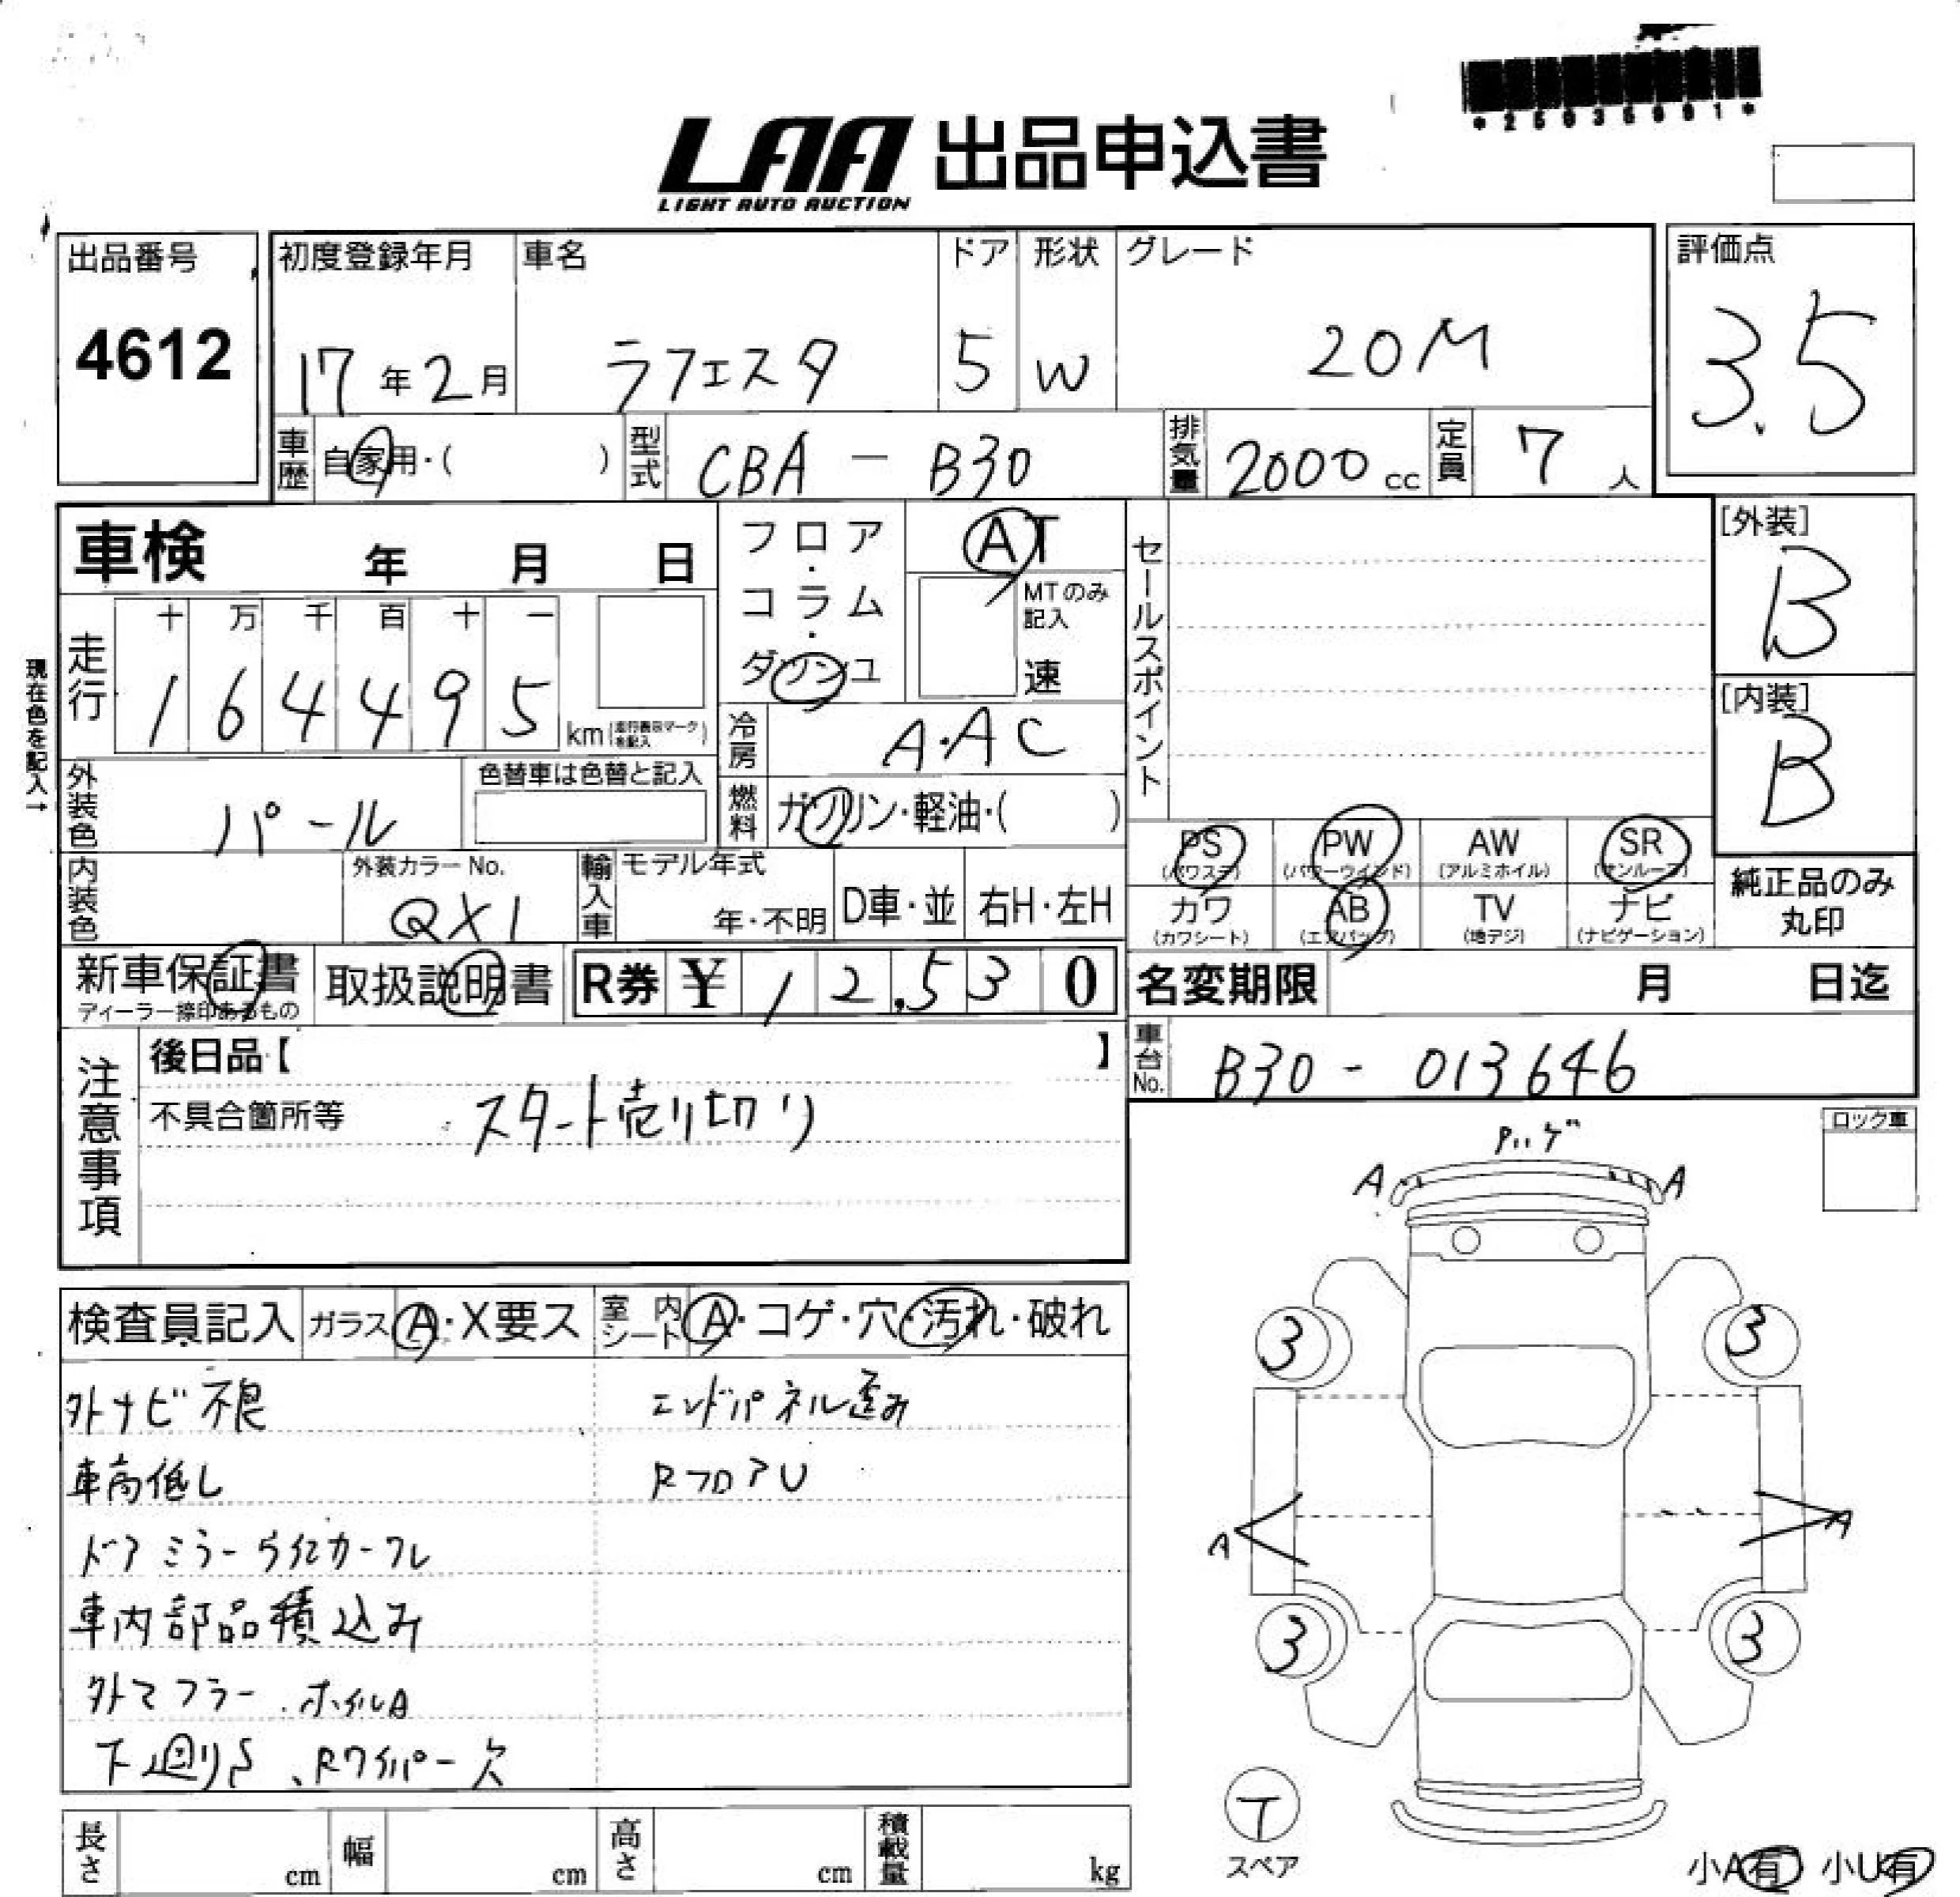 *25035691*
LAA 出品申込書
LIGHT AUTO AUCTION
出品番号 4612
初度登録年月 17年2月
車名 ラフェスタ
ドア 5
形状 W
グレード 20M
評価点 3.5
車歴 自家用・( )
型式 CBA - B30
排気量 2000 cc
定員 7 人
車検 年 月 日
フロア・コラム・ダッシュ
AT
MTのみ記入 速
セールスポイント
[外装] B
[内装] B
現在色を記入→
走行 十 万 千 百 十 一
1 6 4 4 9 5 km(走行表示マークを記入)
冷房 A・AC
外装色 パール
色替車は色替と記入
燃料 ガソリン・軽油・( )
PS (パワステ) PW (パワーウィンド) AW (アルミホイル) SR (サンルーフ)
カワ (カワシート) AB (エアバッグ) TV (地デジ) ナビ (ナビゲーション)
純正品のみ丸印
内装色
外装カラーNo. QX1
輸入車 モデル年式 年・不明 D車・並 右H・左H
新車保証書 ディーラー捺印あるもの
取扱説明書
R券 ¥ 12,530
名変期限 月 日迄
車台No. B30 - 013646
注意事項
後日品【 】
不具合箇所等 スタート売り切り
ロック車
検査員記入 ガラス A・X要ス 室内シート A・コゲ・穴・汚れ・破れ
外ナビ不良 エンドパネル歪み
車高低し RフロアU
車内部品積込み
外マフラー、ホイルA
下廻りS、Rワイパー欠
ハゲ
A A
3 3
A A
3 3
T
スペア
小A有 小U有
長さ cm 幅 cm 高さ cm 積載量 kg